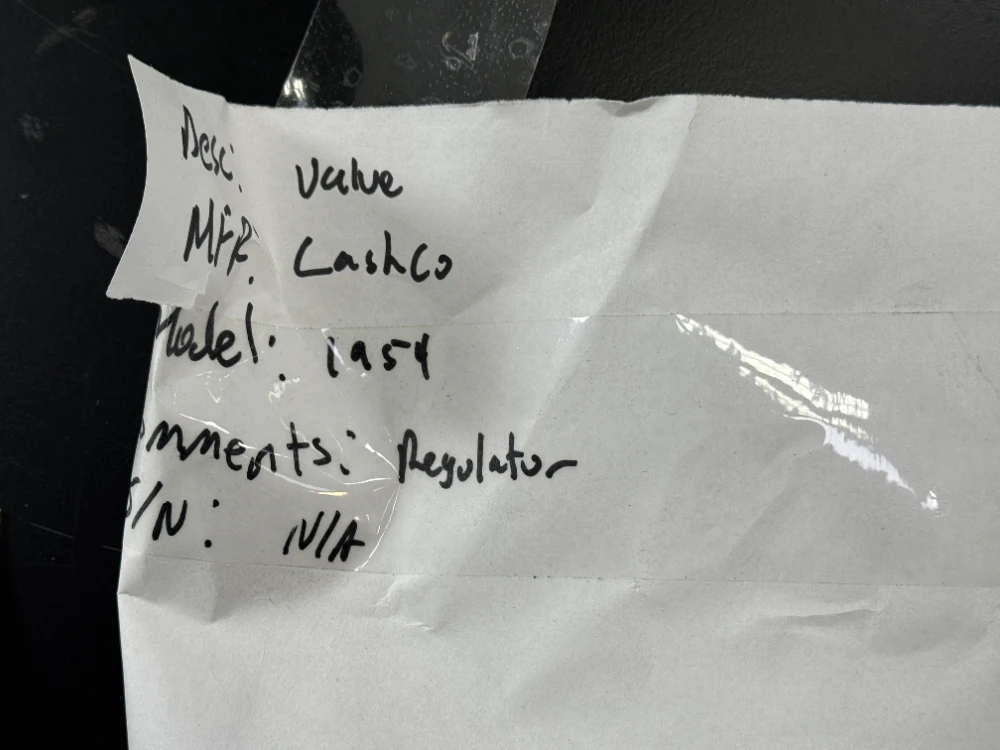 Desc: Valve
MFR: CashCo
Model: 1954
omments: Regulator
S/N: N/A